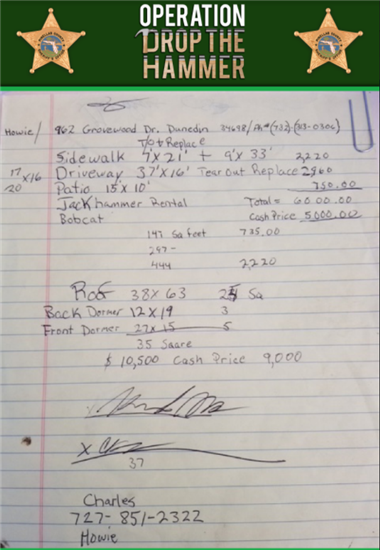 OPERATION
DROP THE
HAMMER
Howie/ 962 Grovewood Dr. Dunedin 34698/
T/o & Replace
Sidewalk 7'x21' + 9'x33' 2,220
17 x16 Driveway 37'x16' Tear out Replace 2960
20 Patio 15'x10' 750.00
Jackhammer Rental Total = 6000.00
Bobcat Cash Price 5,000.00
147 Sq feet 735.00
297-
444 2,220
Roof 38x63 Sq
Back Dormer 12x19 3
Front Dormer 27x15 5
35 Sqare
$10,500 Cash Price 9,000
X
37
Charles
727-851-2322
Howie